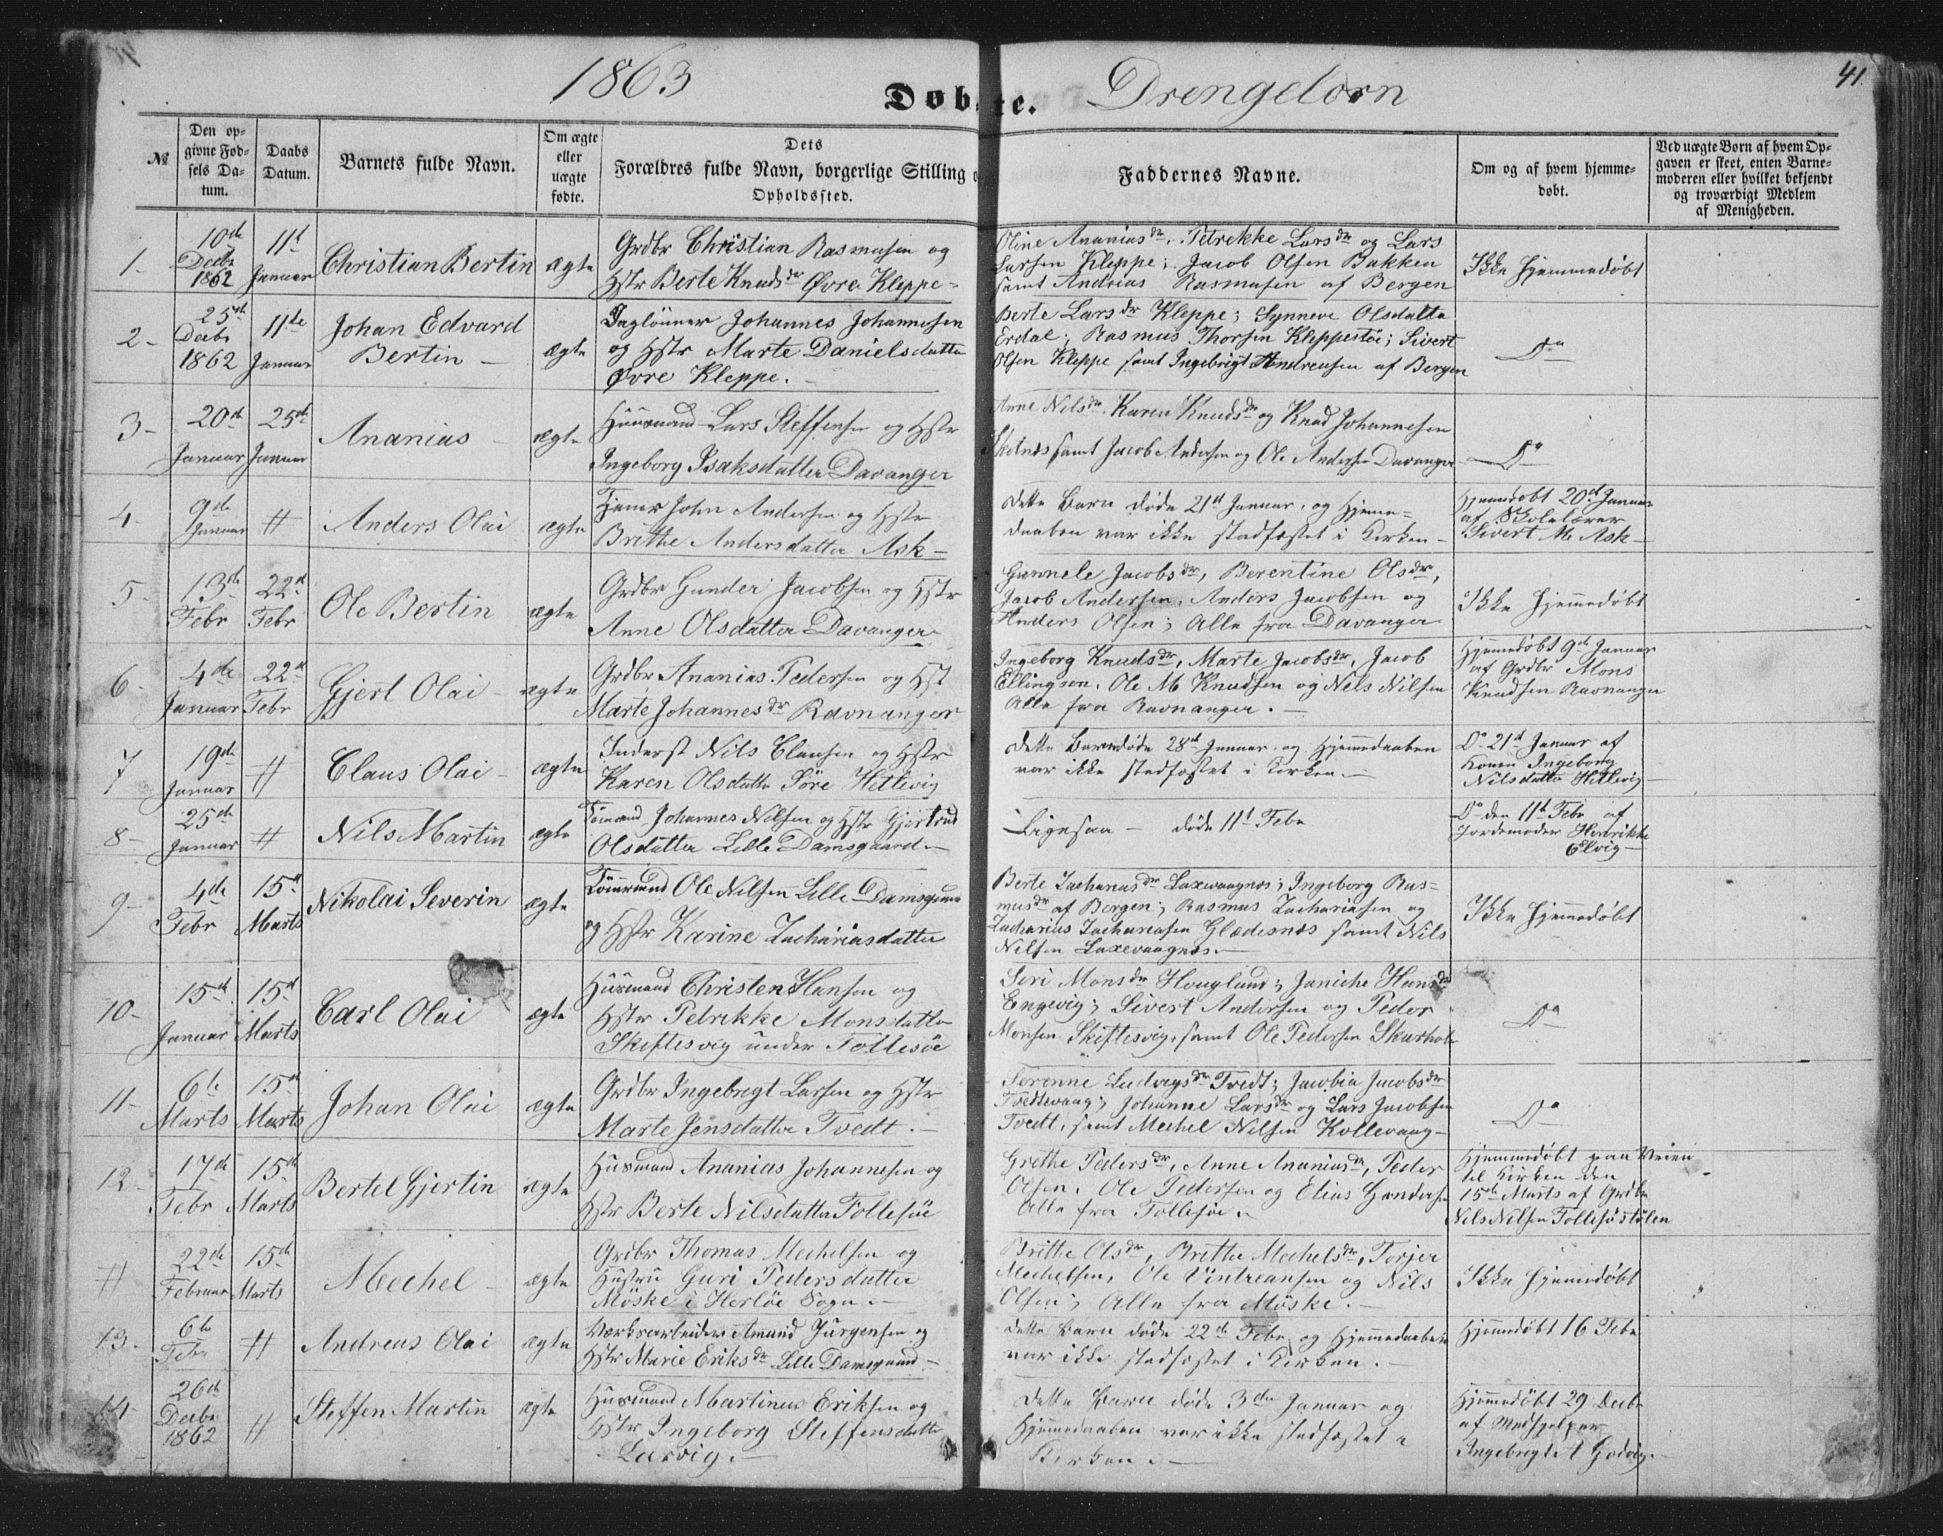 1863
Døbte.
Drengebørn
41
№
Den op-
givne Fød-
sels Da-
tum.
Daabs
Datum.
Barnets fulde Navn.
Om ægte
eller
uægte
fødte.
Dets
Forældres fulde Navn, borgerlige Stilling
Opholdssted.
Faddernes Navne.
Om og af hvem hjemme-
døbt.
Ved uægte Børn af hvem Op-
gaven er skeet, enten Barne-
moderen eller hvilket bekjendt
og troværdigt Medlem
af Menigheden.
1-
10de
Decbr
1862
11te
Januar
Christian Bertin
ægte
Grdbr Christian Rasmusen og
Hstr Berte Knudsdr Øvre Kleppe-
Oline Ananiasdr, Petrekke Larsdr og Lars
Larsen Kleppe; Jacob Olsen Bakken
samt Andreas Rasmusen af Bergen
Ikke hjemmedøbt
2-
25de
Decbr
1862
11te
Januar
Johan Edvard
Bertin -
ægte
Daglønner Johannes Johannesen
og Hstr Marte Danielsdatter
Øvre Kleppe. -
Berte Larsdr Kleppe; Synneve Olsdatter
Erdal; Rasmus Thorsen Kleppestøe; Sivert
Olsen Kleppe samt Ingebrigt Andreasen af Bergen
Do
3-
20de
Januar
25de
Januar
Ananias -
ægte
Huusmand Lars Steffensen og Hstr
Ingeborg Isaksdatter Davanger
Anne Nilsdr, Karen Knudsdr og Knud Johannesen
Skotnes samt Jacob Andersen og Ole Andersen Davanger
Do
4-
9de
Januar
#
Anders Olai
ægte
Tjener John Andersen og Hstr
Brithe Andersdatter Ask -
Dette Barn døde 21de Januar, og Hjemme-
daaben var ikke stadfæstet i Kirken -
Hjemmedøbt 20de Januar
af Skolelærer
Sivert M. Ask -
5-
13de
Febr
22de
Febr
Ole Bertin
ægte
Grdbr Gunder Jacobsen og Hstr
Anne Olsdatter Davanger
Gunnele Jacobsdr, Berentine Olsdr,
Jacob Andersen, Anders Jacobsen og
Anders Olsen; Alle fra Davanger
Ikke hjemmedøbt
6-
4de
Januar
22de
Febr
Gjert Olai -
ægte
Grdbr Ananias Pedersen og Hst
Marte Johannesdr Ravnanger
Ingeborg Knudsdr, Marte Jacobsdr, Jacob
Ellingsen, Ole M Knudsen og Nels Nilsen
Alle fra Ravnanger. -
Hjemmedøbt 9de Januar
af Grdbr Mons
Knudsen Ravnanger
7
19de
Januar
#
Claus Olai -
ægte
Inderst Nils Clausen og Hstr
Karen Olsdatter Søre Hetlevig
Dette Barn døde 28de Januar, og Hjemmedaaben
var ikke stadfæstet i Kirken. -
Do 21de Januar af
Konen Ingeborg
Nilsdatter Hetlevig -
8-
25de
Januar
#
Nils Martin
ægte
Tømmd Johannes Nilsen og Hstr Gjertrud
Olsdatter Lille Damsgaard. -
Ligesaa - døde 11te Febr
Do den 11te Febr af
Jordemoder Henrikke
Elvig -
9-
4de
Febr
15de
Marts
Nikolai Severin
ægte
Tømmermand Ole Nilsen Lille Damsgaard
og Hstr Karine Zachariasdatter
Berte Zachariasdr Laxevaagnes; Ingeborg Ras-
musdr af Bergen; Rasmus Zachariasen og
Zacharias Zachariasen Glædesnæs samt Nils
Nilsen Laxevaagnes. -
Ikke hjemmedøbt
10-
15de
Januar
15de
Marts
Carl Olai
ægte
Huusmand Christen Hansen og
Hstr Petrikke Monsdatter
Skiftesvig under Follesøe
Seri Monsdr Houglund; Janiche Hansdr
Engevig; Sivert Andersen og Peder
Monsen Skiftesvig, samt Ole Pedersen
Do
11-
6te
Marts
15de
Marts
Johan Olai
ægte
Grdbr Ingebregt Larsen og Hstr
Marte Jensdatter Tvedt. -
Serenne Ludvigsdr Tvedt; Jacobia Jacobsdr
Tvedtevaag; Johanne Larsdr og Lars Jacobsen
Tvedt, samt Mechel Nilsen Kollevaag -
Do
12-
17de
Febr
15de
Marts
Bertel Gjertin
ægte
Husmand Ananias Johannesen og
Hstr Berte Nilsdatter Follesøe
Grethe Pedersdr, Anne Ananiasdr, Peder
Olsen, Ole Pedersen og Elias Gundersen
Alle fra Follesøe. -
Hjemmedøbt paa Veien
til Kirken den
15de Marts af Grdbr
Nils Nilsen Follesøstølen
#
22de
Februar
15de
Marts
Mechel -
ægte
Grdbr Thomas Mechelsen og
Hustru Guri Pedersdatter
Møske i Herløe Sogn. -
Brithe Olsdr, Brithe Mechelsdr, Torjer
Mechelsen, Ole Vintreansen og Nils
Olsen; Alle fra Møske. -
Ikke hjemmedøbt
13.
6te
Febr
#
Andreas Olai
ægte
Værksarbeider Amund Jürgensen og
Hstr Marie Eriksdr Lille Damsgaard -
Dette Barn døde 22de Febr, og Hjemmedaaben
var ikke stadfæstet i Kirken. -
Hjemmedøbt 16 Febr
14
26de
Decbr
1862
#
Steffen Martin
ægte
Husmand Martinus Eriksen og
Hstr Ingeborg Steffensdatter
Larvig. -
Dette Barn døde 3die Januar og
Hjemmedaaben var ikke stadfæstet i
Kirken. -
Hjemmedøbt 29 Decbr
af Medhjelper
Ingebregt